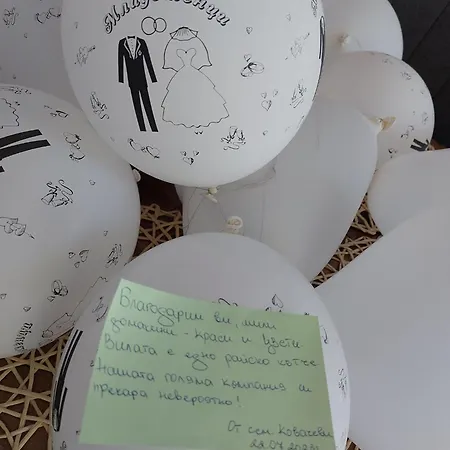 Младоженци
Благодарим ви, мили
домакини - Краси и Цвети
Вилата е едно райско кътче
Нашата голяма компания си
прекара невероятно!
От сем. Ковачеви